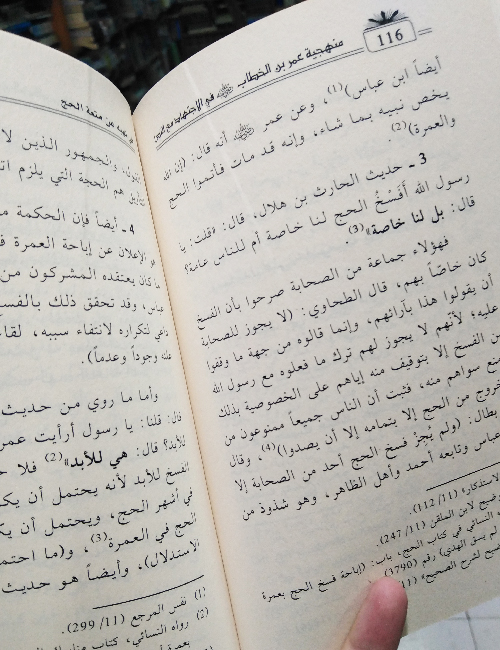 116
منهجية عمر بن الخطاب ﷺ في الاجتهاد مع النص
أيضاً ابن عباس)(1)، وعن عمر ﷺ أنه قال: (إن الله
يخص نبيه بما شاء، وإنه قد مات فأتموا الحج
والعمرة)(2).
3 ـ حديث الحارث بن هلال، قال: «قلت: يا
رسول الله أَفَسْخُ الحج لنا خاصة أم للناس عامة؟
قال: بل لنا خاصة»(3).
فهؤلاء جماعة من الصحابة صرحوا بأن الفسخ
كان خاصّاً بهم، قال الطحاوي: (لا يجوز للصحابة
أن يقولوا هذا بآرائهم، وإنما قالوه من جهة ما وقفوا
عليه؛ لأنهم لا يجوز لهم ترك ما فعلوه مع رسول الله
من الفسخ إلا بتوقيف منه إياهم على الخصوصية بذلك
منع سواهم منه، فثبت أن الناس جميعاً ممنوعون من
الخروج من الحج إلا بتمامه إلا أن يصدوا)(4)، وقال
بطال: (ولم يُجِزْ فسخ الحج أحد من الصحابة إلا
عباس وتابعه أحمد وأهل الظاهر، وهو شذوذ من
الاستذكار» (11/ 112).
لابن الملقن (11/ 247).
النسائي في كتاب الحج، باب: (إباحة فسخ الحج بعمرة
لم يسق الهدي) رقم (3790)
لشرح الصحيح»
عن متعة الحج
والجمهور الذين لا
هم الحجة التي يلزم
4 ـ أيضاً فإن الحكمة
الإعلان عن إباحة العمرة
ما كان يعتقده المشركون من
عباس، وقد تحقق ذلك بالفسخ
لتكراره لانتفاء سببه،
وجوداً وعدماً).
وأما ما روي من حديث
قال: قلنا: يا رسول أرأيت عمر
للأبد؟ قال: هي للأبد»(2) فلا
الفسخ للأبد لأنه يحتمل أن يكون
في أشهر الحج، ويحتمل أن
الحج في العمرة(3)، و(ما احتمل
الاستدلال)، وأيضاً هو حديث
(1) نفس المرجع (11/ 299).
(2) رواه النسائي، كتاب
بعمرة